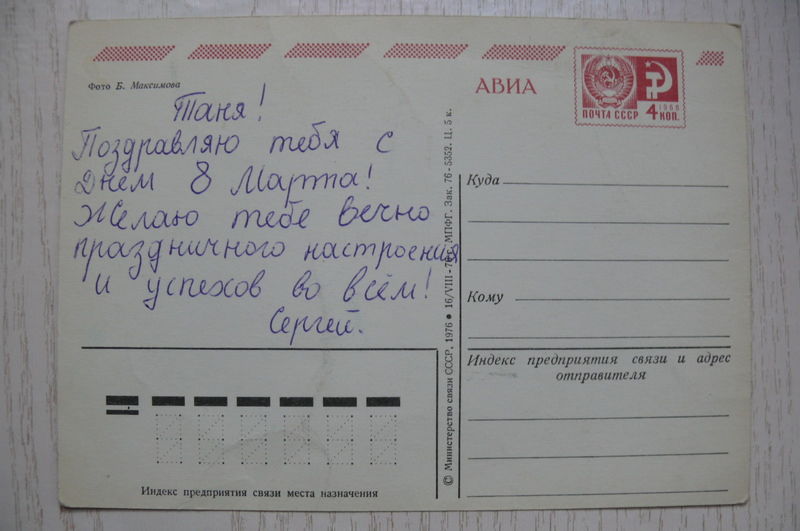 Фото Б. Максимова
Таня!
Поздравляю тебя с
Днем 8 Марта!
Желаю тебе вечно
праздничного настроения
и успехов во всём!
Сергей.
Индекс предприятия связи места назначения
© Министерство связи СССР, 1976 • 16/VIII-76 г. МПФГ. Зак. 76-5352. Ц. 5 к.
АВИА
1966
ПОЧТА СССР 4 КОП.
Куда
Кому
Индекс предприятия связи и адрес
отправителя